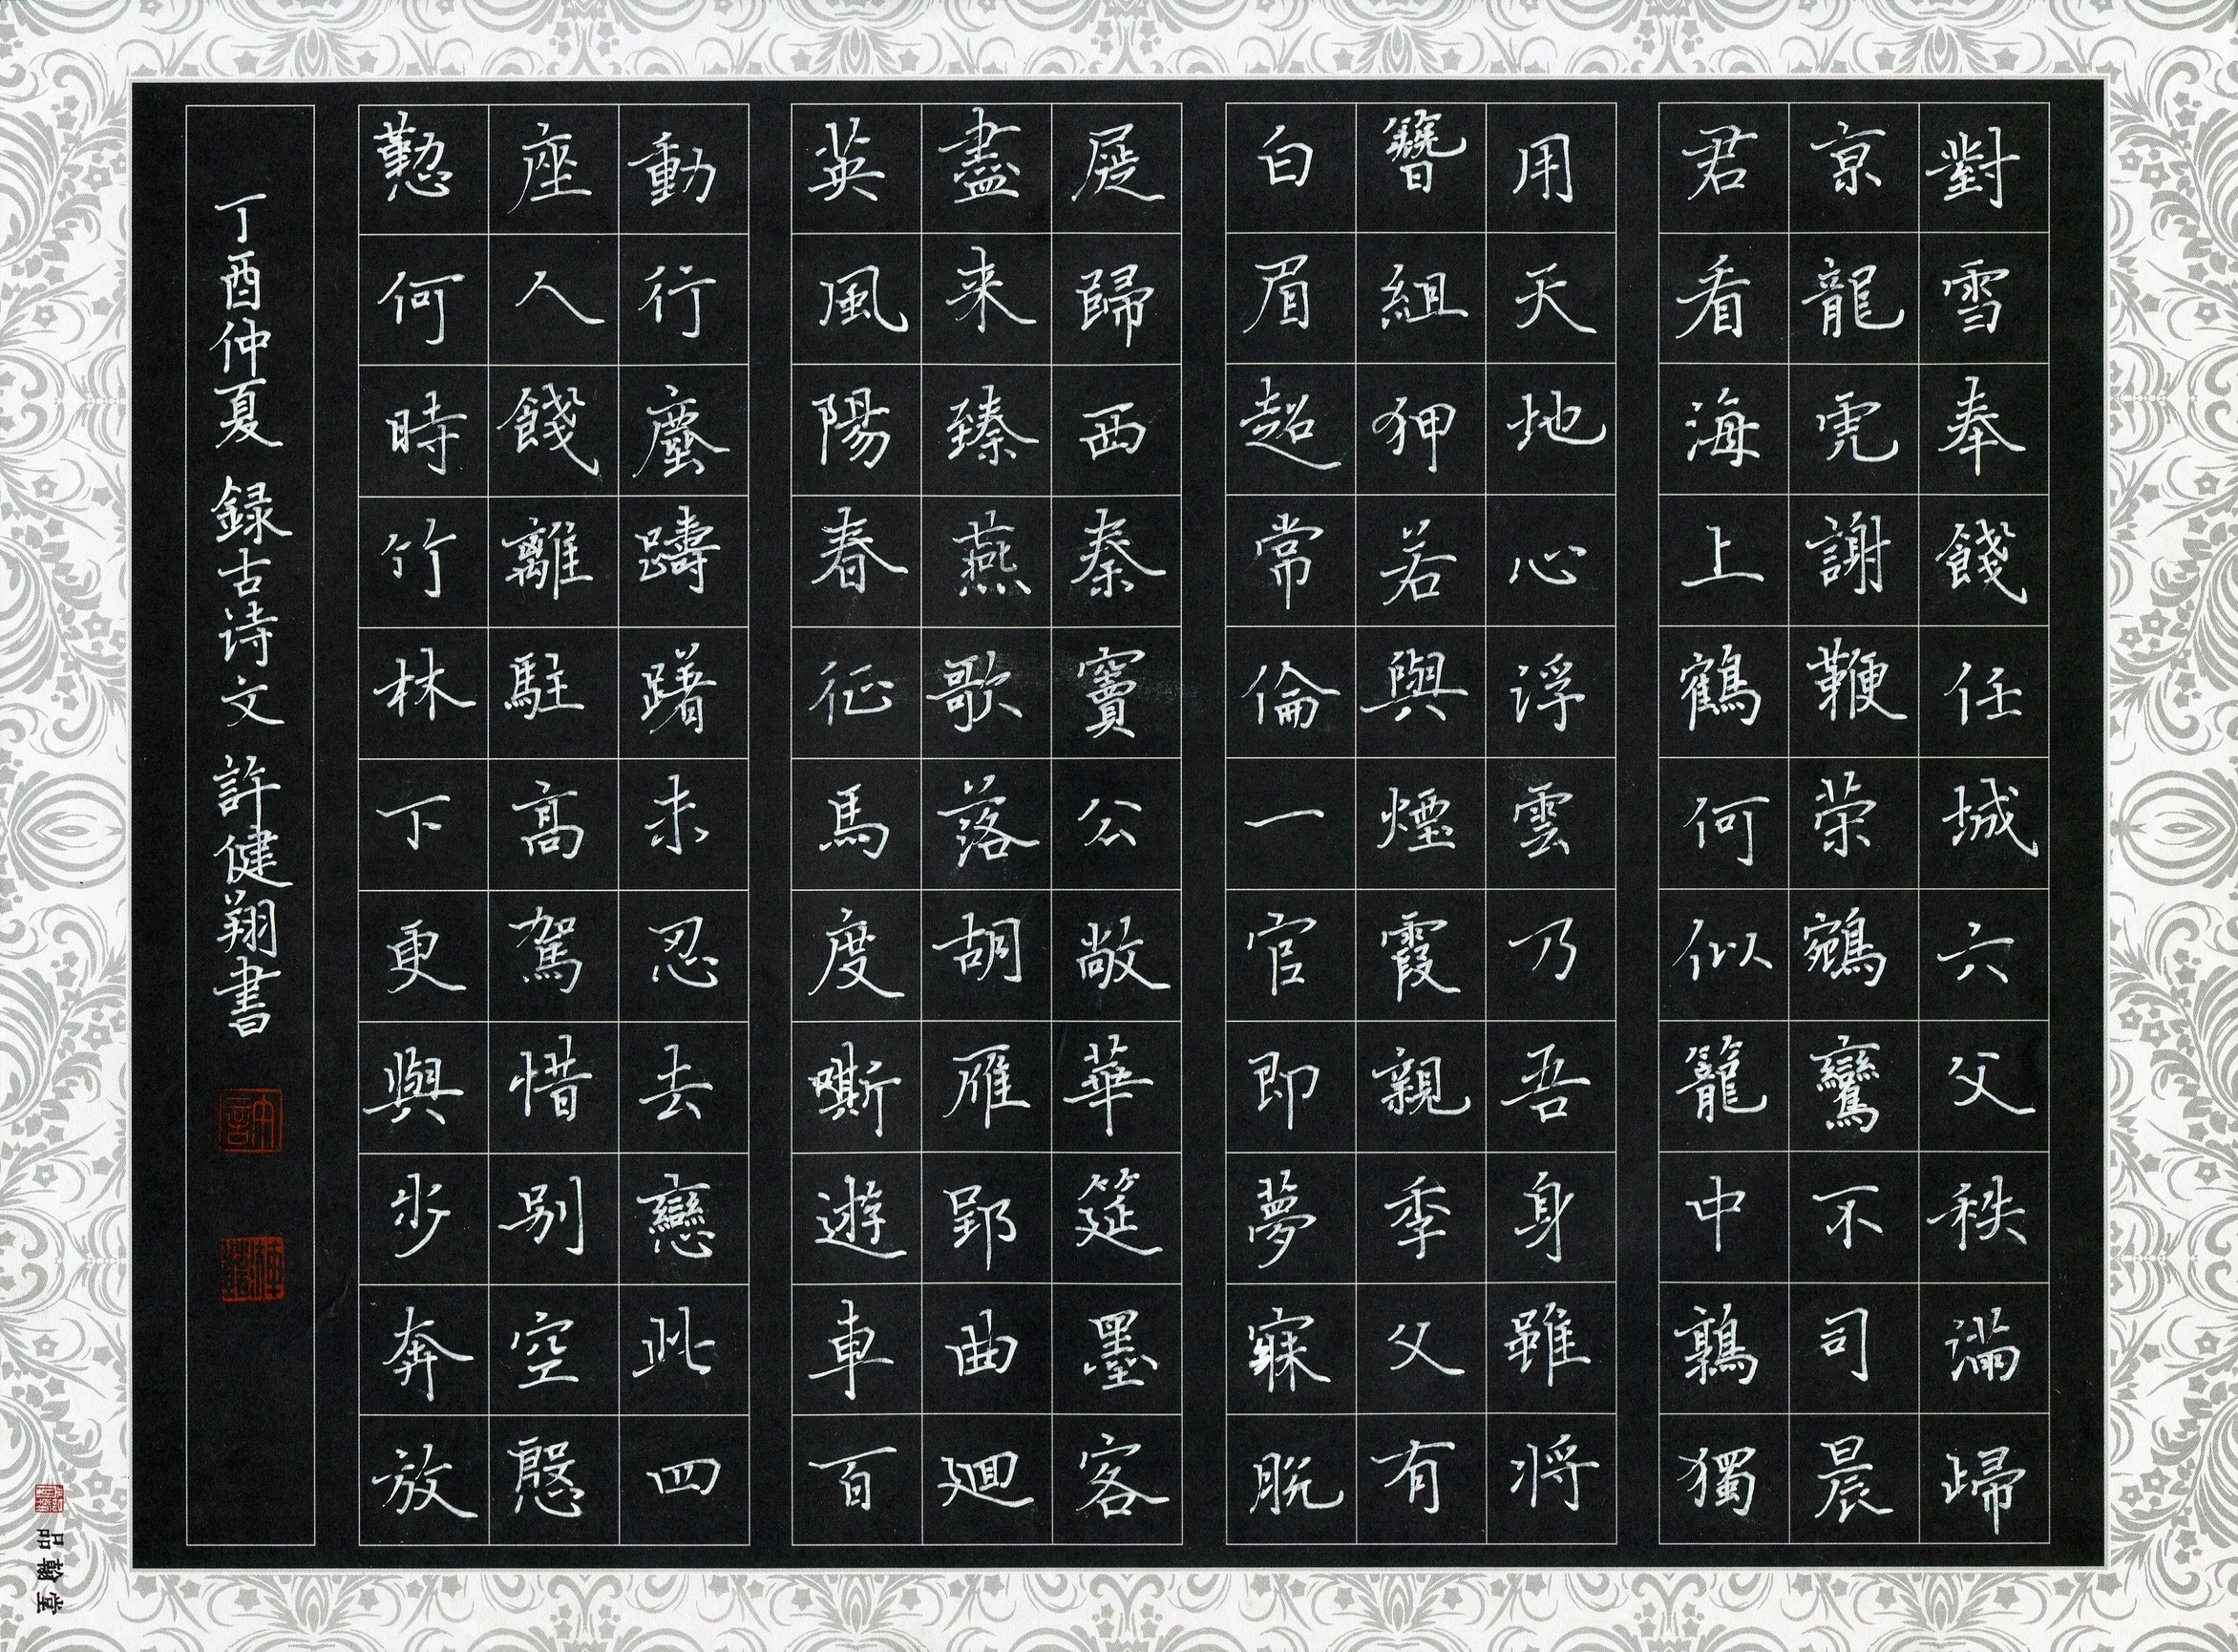 對雪奉餞任城六父秩滿歸
京龍虎謝鞭荣鵷鸞不司晨
君看海上鶴何似籠中鶉獨
用天地心浮雲乃吾身雖将
簪組狎若與煙霞親季父有
白眉超常倫一官即夢寐脫
屣歸西秦竇公敞華筵墨客
盡来臻燕歌落胡雁郢曲廻
英風陽春征馬度嘶遊車百
動行塵躊躇未忍去戀此四
座人餞離駐高駕惜別空慇
懃何時竹林下更與步奔放
丁酉仲夏 録古诗文 許健翔書
品翰堂